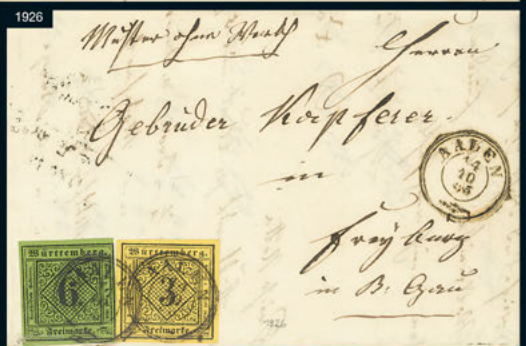 1926
Muster ohne Werth
Herren
Gebrüder Kapferer
in
AALEN
14
10
Freyburg
in B: Gau
Württemberg.
6
Freimarke.
Württemberg.
3
Freimarke.
1926